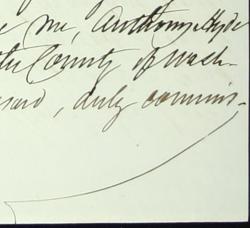 e me, Anthony Hyde
the County of Wash-
esaid, duly commis-